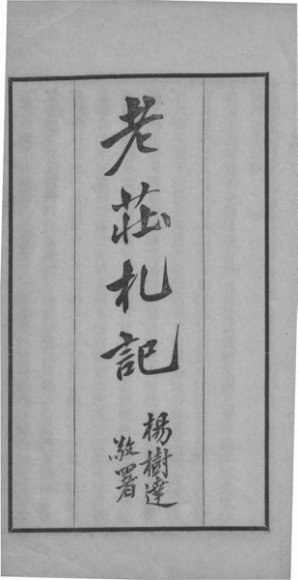 老莊札記
楊樹達
敬署